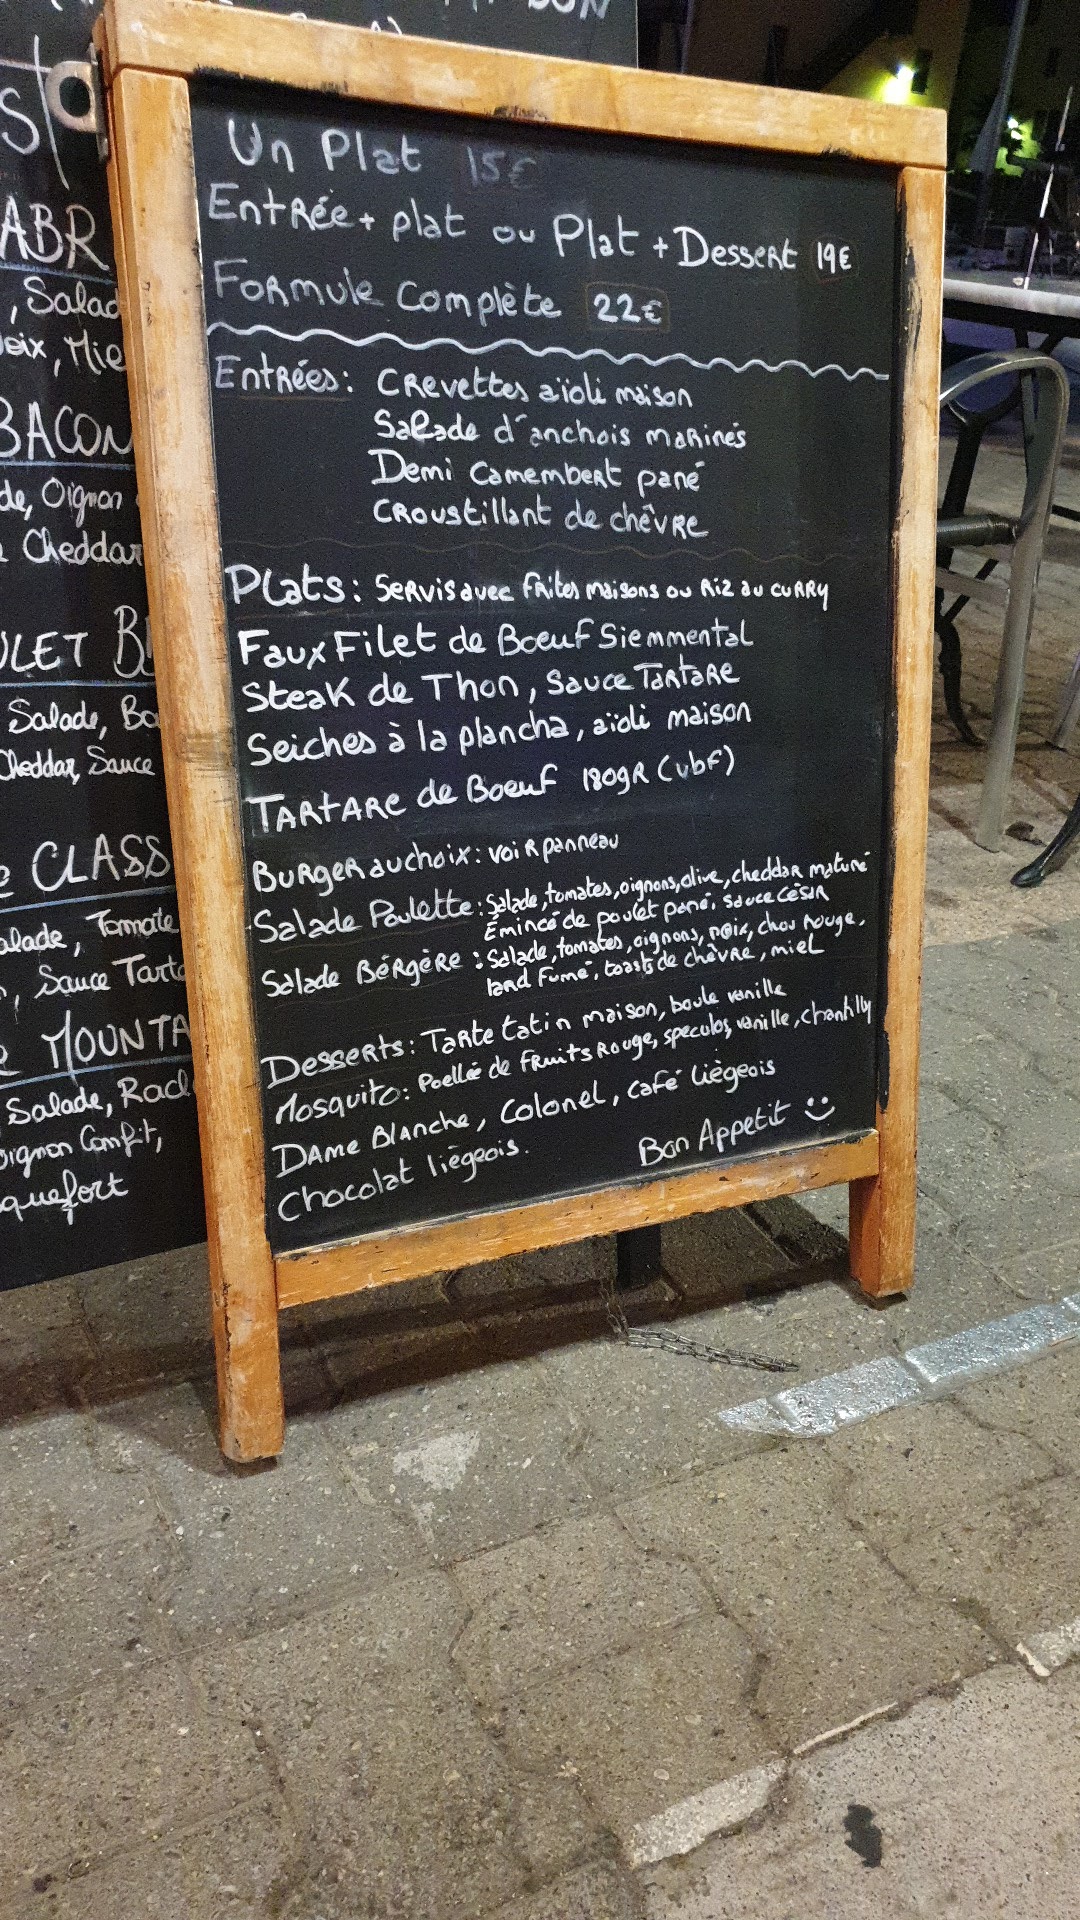 Un Plat 15€
Entrée + plat ou Plat + Dessert 19€
Formule Complète 22€
Entrées: Crevettes aïoli maison
Salade d'anchois marinés
Demi Camembert pané
Croustillant de chêvre
Plats: Servis avec frites maisons ou Riz au curry
Faux Filet de Boeuf Siemmental
Steak de Thon, Sauce Tartare
Seiches à la plancha, aïoli maison
Tartare de Boeuf 180gr (vbf)
Burger au choix: voir panneau
Salade Paulette: Salade, tomates, oignons, olive, cheddar maturé
Émincé de poulet pané, sauce César
Salade Bérgère: Salade, tomates, oignons, noix, chou rouge,
lard fumé, toasts de chêvre, miel
Desserts: Tarte tatin maison, boule vanille
Mosquito: Poellée de fruits rouge, speculos, vanille, chantilly
Dame Blanche, Colonel, café liègeois
Chocolat liègeois.
Bon Appetit
ABR
, Salad
oix, Mie
BACON
de, Oignon
Cheddar
ULET B
Salade, Ba
Cheddar, Sauce
e CLASS
alade, Tomate
, Sauce Tarta
MOUNTA
Salade, Racl
oignon Comfit,
quefort